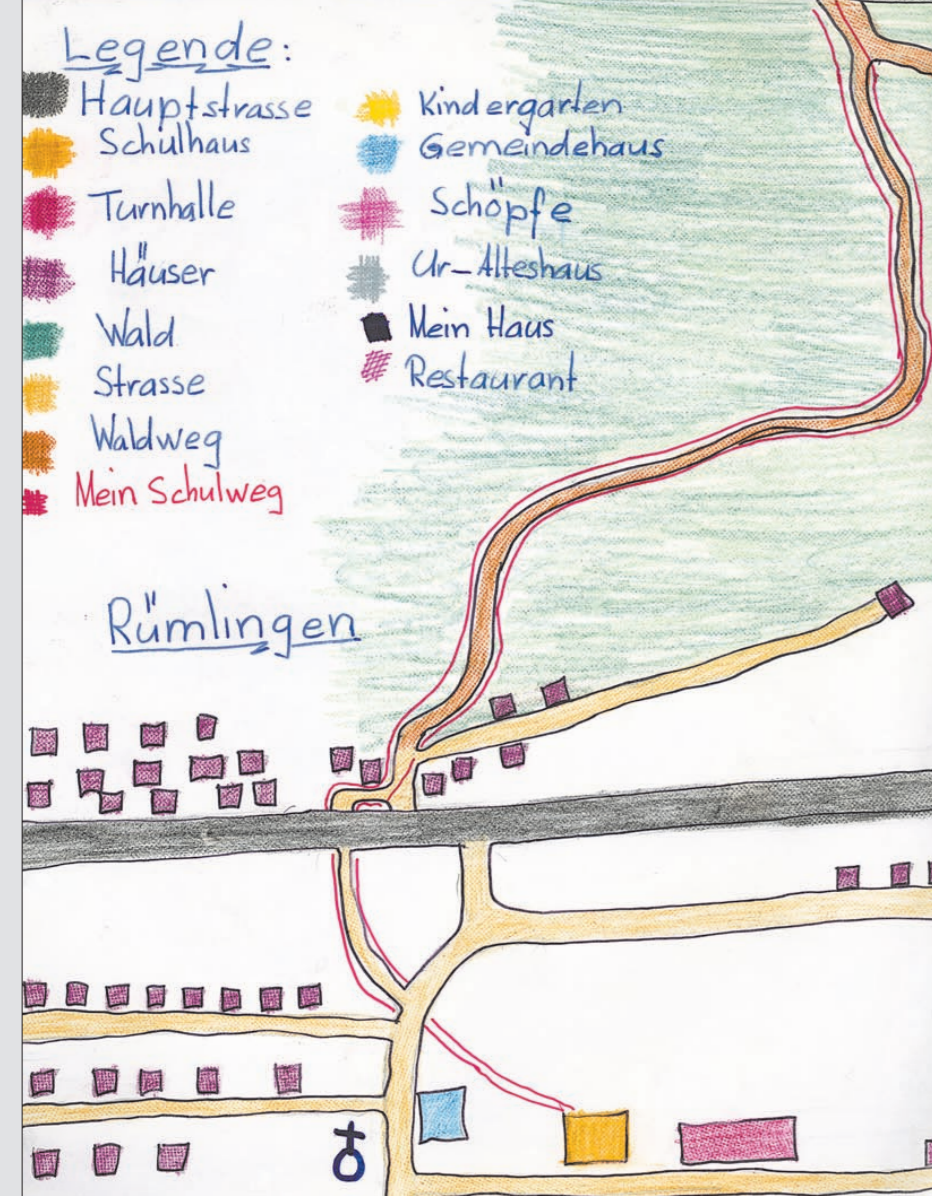 Legende:
Hauptstrasse
Schulhaus
Turnhalle
Häuser
Wald
Strasse
Waldweg
Mein Schulweg
Kindergarten
Gemeindehaus
Schöpfe
Ur-Alteshaus
Mein Haus
Restaurant
Rümlingen